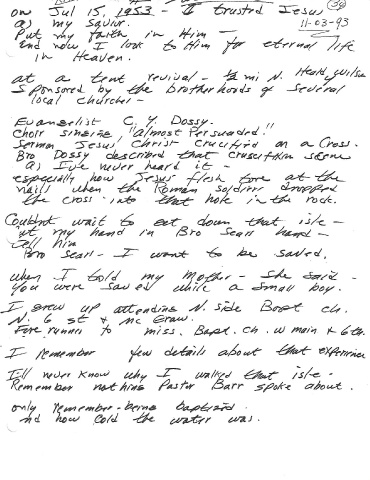 on Jul 15, 1953 - I trusted Jesus
39
as my savior.
11-03-93
Put my faith in Him -
And now I look to Him for eternal life
in Heaven.
at a tent revival - mi N.
Sponsored by the brotherhoods of several
local churches -
Evangelist C. Y. Dossy.
Choir singing "almost Persuaded."
Sermon Jesus Christ Crucified on a Cross.
Bro Dossy described that crucifixion scene
as I've never heard it -
especially how Jesus flesh tore at the
nails when the Roman soldiers dropped
the cross into that hole in the rock.
Couldnt wait to get down that isle -
Put my hand in Bro Sears hand -
Tell him
Bro Sears - I want to be saved.
when I told my Mother - She said -
You were saved while a small boy.
I grew up attending N. side Bapt ch.
N. 6 st & Mc Graw.
Fore runner to miss. Bapt. Ch. w main & 6th.
I remember few details about that experience
I'll never know why I walked that isle -
Remember nothing Pastor Barr spoke about.
only remember - being baptized
And how cold the water was.